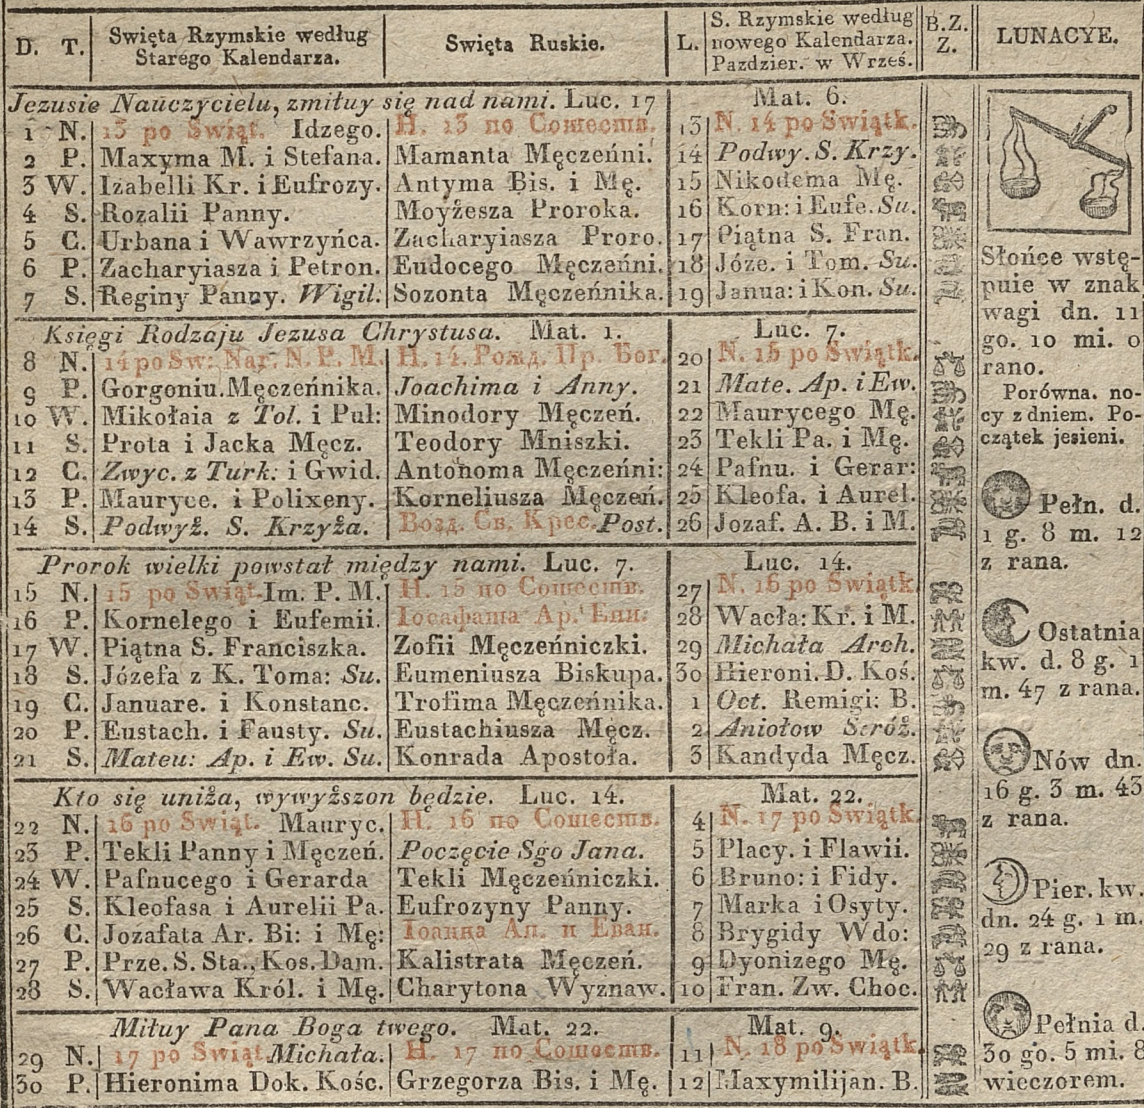 D. T. Swięta Rzymskie według Starego Kalendarza. Swięta Ruskie. L. S. Rzymskie według nowego Kalendarza. Pazdzier. w Wrześ. B.Z. Z. LUNACYE.
Jezusie Nauczycielu, zmiłuy się nad nami. Luc. 17 Mat. 6.
1 N. 13 po Swiąt. Idzego. Н. 13 по Сошеств. 13 N. 14 po Swiątk.
2 P. Maxyma M. i Stefana. Mamanta Męczeńni. 14 Podwy. S. Krzy.
3 W. Izabelli Kr. i Eufrozy. Antyma Bis. i Mę. 15 Nikodema Mę.
4 S. Rozalii Panny. Moyżesza Proroka. 16 Korn: i Eufe. Su.
5 C. Urbana i Wawrzyńca. Zacharyiasza Proro. 17 Piątna S. Fran.
6 P. Zacharyiasza i Petron. Eudocego Męczeńni. 18 Józe. i Tom. Su.
7 S. Reginy Panny. Wigil: Sozonta Męczeńnika. 19 Janua: i Kon. Su.
Księgi Rodzaju Jezusa Chrystusa. Mat. 1. Luc. 7.
8 N. 14 po Sw: Nar. N. P. M. Н. 14. Рожд. Пр. Бог. 20 N. 15 po Swiątk.
9 P. Gorgoniu. Męczeńnika. Joachima i Anny. 21 Mate. Ap. i Ew.
10 W. Mikołaia z Tol. i Pul: Minodory Męczeń. 22 Maurycego Mę.
11 S. Prota i Jacka Męcz. Teodory Mniszki. 23 Tekli Pa. i Mę.
12 C. Zwyc. z Turk: i Gwid. Antonoma Męczeńni: 24 Pafnu. i Gerar:
13 P. Mauryce. i Polixeny. Korneliusza Męczeń. 25 Kleofa. i Aurel.
14 S. Podwyż. S. Krzyża. Возд. Св. Крес. Post. 26 Jozaf. A. B. i M.
Prorok wielki powstał między nami. Luc. 7. Luc. 14.
15 N. 15 po Swiąt. Im. P. M. Н. 15 по Сошеств. 27 N. 16 po Swiątk
16 P. Kornelego i Eufemii. Іосафата Ар. Епи. 28 Wacła: Kr. i M.
17 W. Piątna S. Franciszka. Zofii Męczeńniczki. 29 Michała Arch.
18 S. Józefa z K. Toma: Su. Eumeniusza Biskupa. 30 Hieroni. D. Koś.
19 C. Januare. i Konstanc. Trofima Męczeńnika. 1 Oct. Remigi: B.
20 P. Eustach. i Fausty. Su. Eustachiusza Męcz. 2 Aniołow Stróż.
21 S. Mateu: Ap. i Ew. Su. Konrada Apostoła. 3 Kandyda Męcz.
Kto się uniża, wywyższon będzie. Luc. 14. Mat. 22.
22 N. 16 po Swiąt. Mauryc. Н. 16 по Сошеств. 4 N. 17 po Swiątk.
23 P. Tekli Panny i Męczeń. Poczęcie Sgo Jana. 5 Placy. i Flawii.
24 W. Pafnucego i Gerarda Tekli Męczeńniczki. 6 Bruno: i Fidy.
25 S. Kleofasa i Aurelii Pa. Eufrozyny Panny. 7 Marka i Osyty.
26 C. Jozafata Ar. Bi: i Mę: Іоанна Ап. и Еван. 8 Brygidy Wdo:
27 P. Prze. S. Sta., Kos. Dam. Kalistrata Męczeń. 9 Dyonizego Mę.
28 S. Wacława Król. i Mę. Charytona Wyznaw. 10 Fran. Zw. Choc.
Miłuy Pana Boga twego. Mat. 22. Mat. 9.
29 N. 17 po Swiąt. Michała. Н. 17 по Сошеств. 11 N. 18 po Swiątk.
30 P. Hieronima Dok. Kośc. Grzegorza Bis. i Mę. 12 Maxymilijan. B.
Słońce wstę-
puie w znak
wagi dn. 11
go. 10 mi. 0
rano.
Porówna. no-
cy z dniem. Po-
czątek jesieni.
Pełn. d.
1 g. 8 m. 12
z rana.
Ostatnia
kw. d. 8 g. 1
m. 47 z rana.
Nów dn.
16 g. 3 m. 43
z rana.
Pier. kw.
dn. 24 g. 1 m.
29 z rana.
Pełnia d.
30 go. 5 mi. 8
wieczorem.